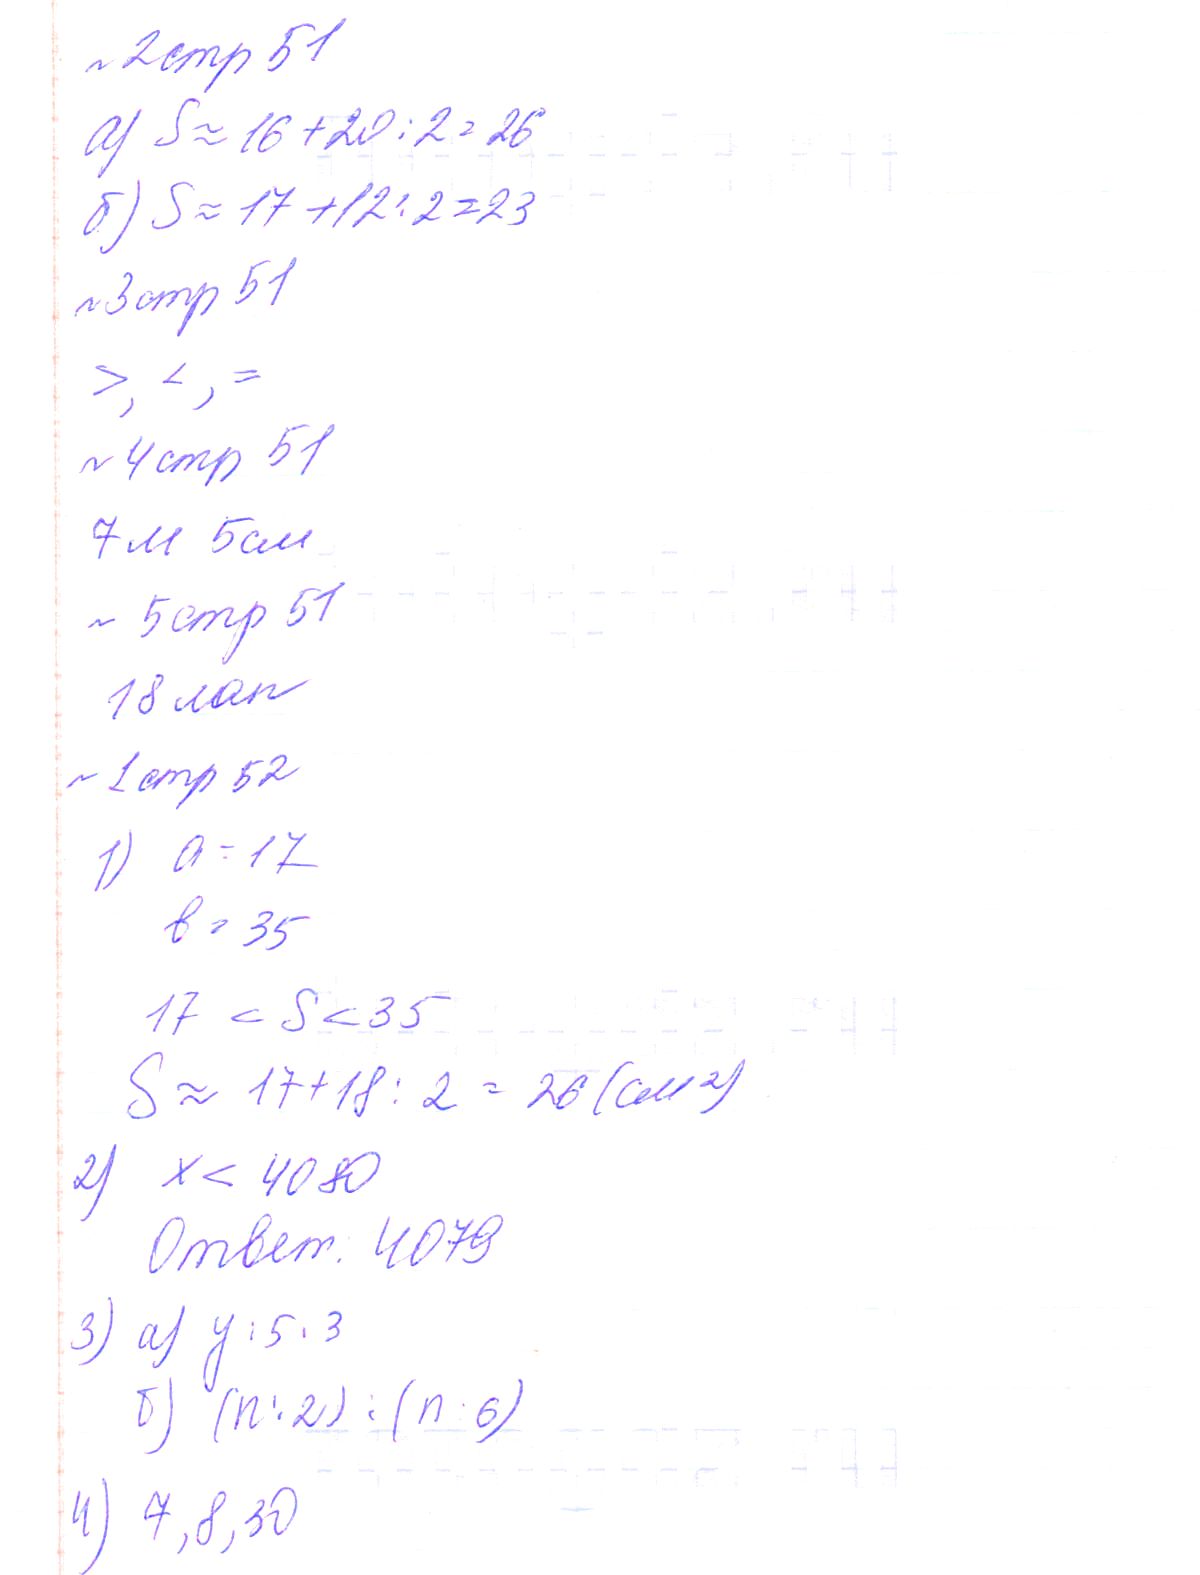 ~2 стр 51
а) S ≈ 16 + 20 : 2 = 26
б) S ≈ 17 + 12 : 2 = 23
~3 стр 51
>, <, =
~4 стр 51
7 м 5 см
~ 5 стр 51
18 лап
~1 стр 52
1) a = 17
в = 35
17 < S < 35
S ≈ 17 + 18 : 2 = 26 (см²)
2) x < 4080
Ответ: 4079
3) а) y : 5 · 3
б) (n : 2) : (n : 6)
4) 7, 8, 30